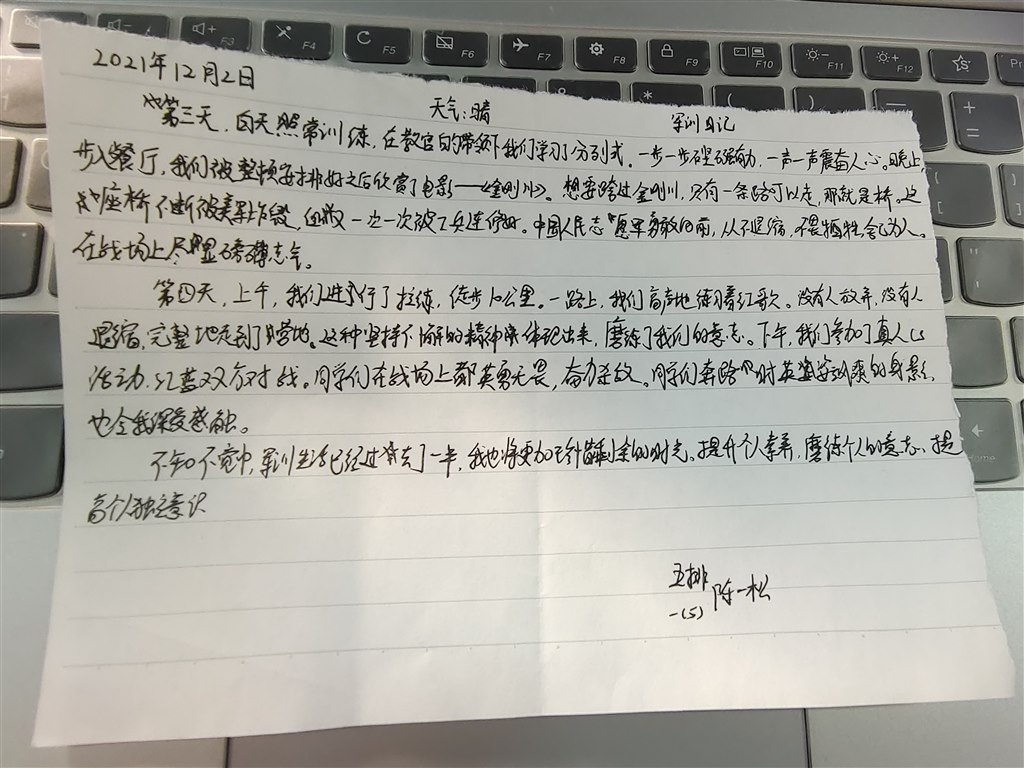 2021年12月2日
天气:晴 军训日记
第三天,白天照常训练,在教官的带领下我们学习了分列式。一步一步铿锵有力,一声一声震奋人心。晚上
步入餐厅,我们被整顿安排好之后欣赏了电影——《金刚川》。想要跨过金刚川,只有一条路可以走,那就是桥。这
座桥不断被美军炸毁,但一次一次被工兵连修好。中国人民志愿军勇敢向前,从不退缩,不畏牺牲,舍己为人。
在战场上尽显磅礴志气。
第四天,上午,我们进行了拉练,徒步10公里。一路上,我们高声地练习着红歌。没有人放弃,没有人
退缩,完整地走到了营地。这种坚持不懈的精神体现出来,磨练了我们的意志。下午,我们参加了真人CS
活动,红蓝双方对战。同学们在战场上都英勇无畏,奋力杀敌。同学们奔跑时英姿飒爽的身影,
也令我深受感触。
不知不觉中,军训生活已经过去了一半,我也将更加珍惜剩余的时光。提升个人素养,磨练个人的意志、提
高个人独立意识
五排
一(5) 陈一松
F3 F4 F5 F6 F7 F8 F9 F10 F11 F12
Home